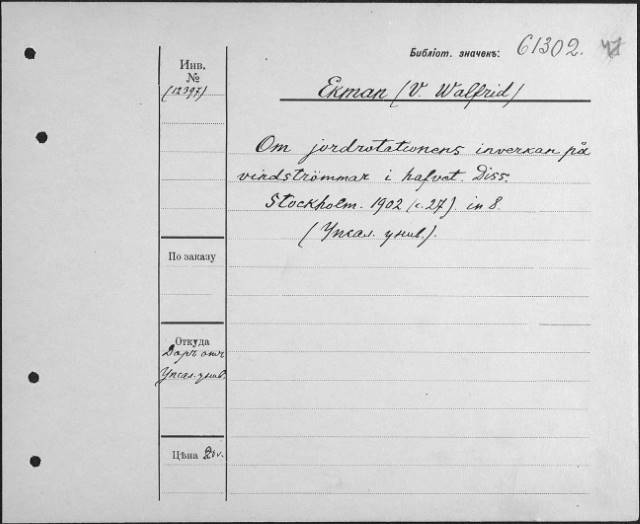 Библіот. значекъ: 61302.
Инв.
№
(12397)
Ekman (V. Walfrid)
Om jordrotationens inverkan på
vindströmmar i hafvet. Diss.
Stockholm. 1902 (с. 27). in 8.
(Упсал. унив.).
По заказу
Откуда
Даръ отъ
Упсал. унив.
Цѣна